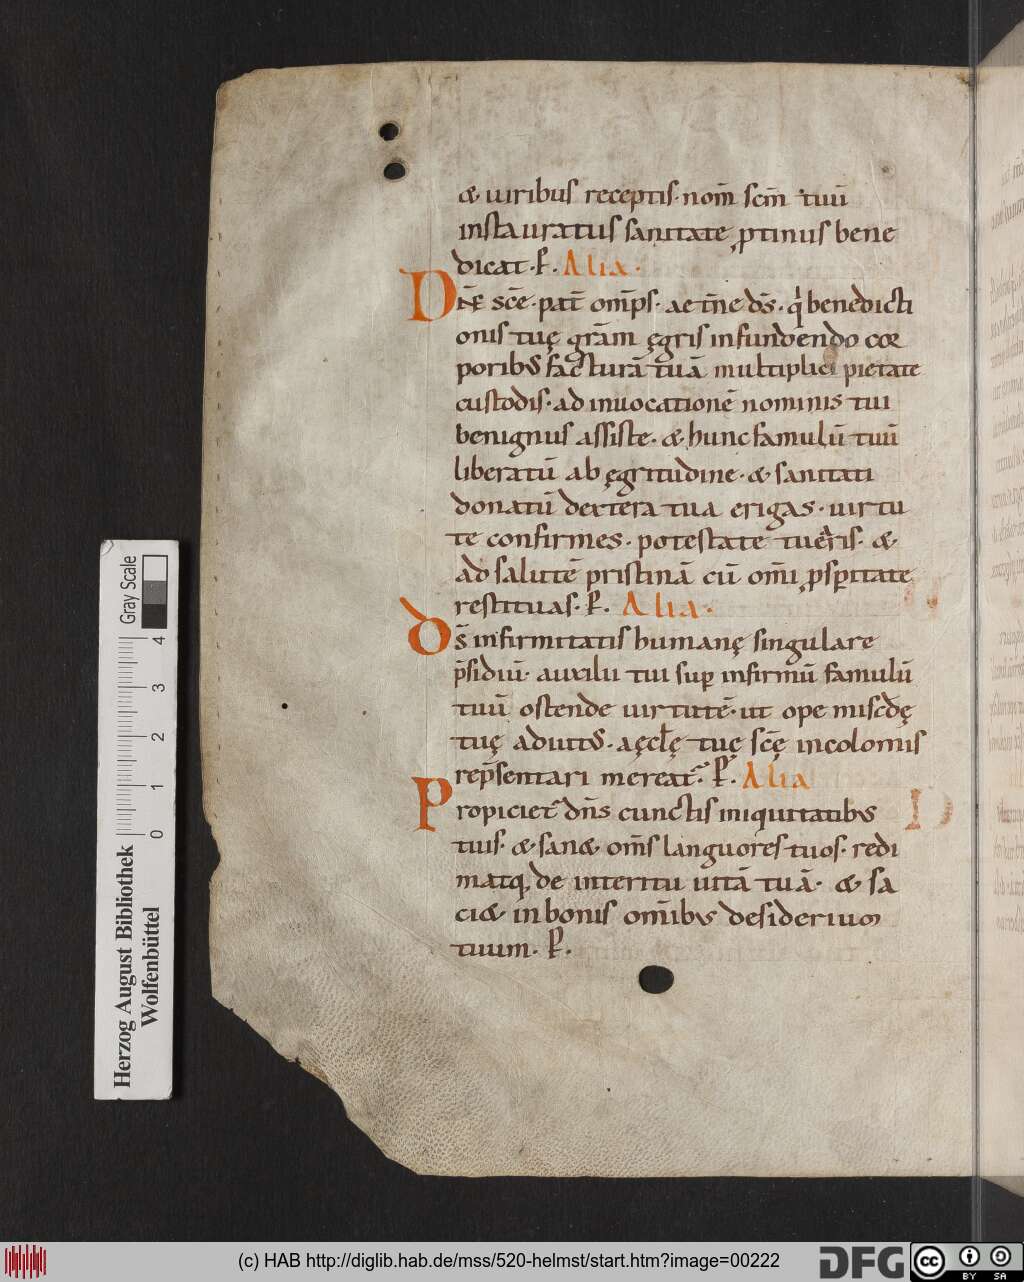 & uiribus receptis· nom̄ scm̄ tuū
instauratus sanitate ꝓtinus bene
dicat· ꝶ. Alia·
DN̄E sc̄e· pat̄ om̄ps· aet̄ne ds̄· qⁱ benedicti
onis tuę grām ęgris infundendo cor
poribus facturā tuā multiplici pietate
custodis· ad inuocationē nominis tui
benignus assiste· & hunc famulū tuū
liberatū ab ęgritudine· & sanitati
donatū dextera tua erigas· uirtu
te confirmes· potestate tuearis· &
ad salutē pristinā cū om̄i ꝓsꝑitate
restituas· ꝶ. Alia·
Ds̄ infirmitatis humanę singulare
p̄sidiū· auxilii tui suꝑ infirmū famulū
tuū ostende uirtutē· ut ope misc̄dę
tuę adiutus· aęcl̄ę tuę sc̄ę incolomis
rep̄sentari mereat᷑· ꝶ. Alia
Propiciet᷑ dn̄s cunctis iniquitatibus
tuis· & san& om̄s languores tuos· redi
matq; de interitu uitā tuā· & sa
ci& in bonis om̄ibus desiderium
tuum· ꝶ.
Gray Scale
4 3 2 1 0
Herzog August Bibliothek
Wolfenbüttel
(c) HAB http://diglib.hab.de/mss/520-helmst/start.htm?image=00222
DFG
cc BY SA